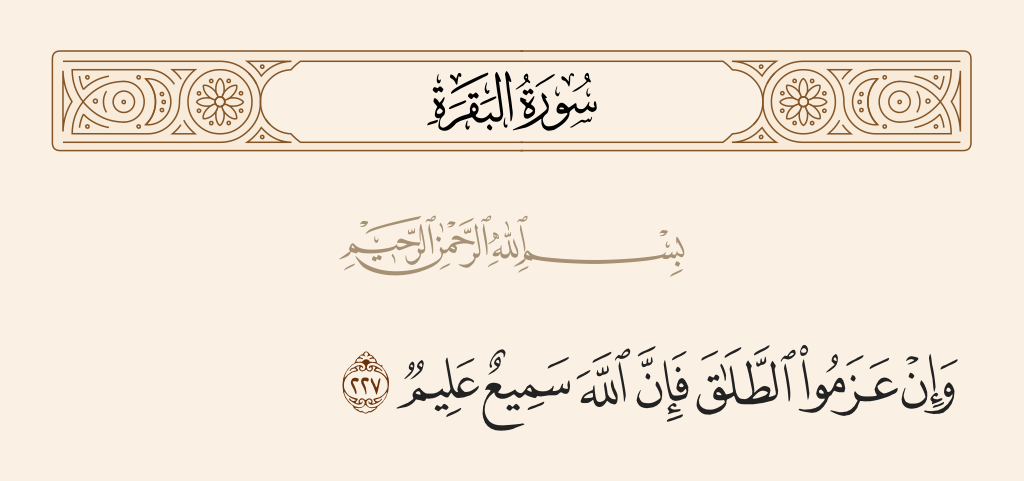 سُورَةُ البَقَرَةِ
بِسْمِ ٱللَّهِ ٱلرَّحْمَٰنِ ٱلرَّحِيمِ
وَإِنْ عَزَمُوا۟ ٱلطَّلَٰقَ فَإِنَّ ٱللَّهَ سَمِيعٌ عَلِيمٌ ٢٢٧